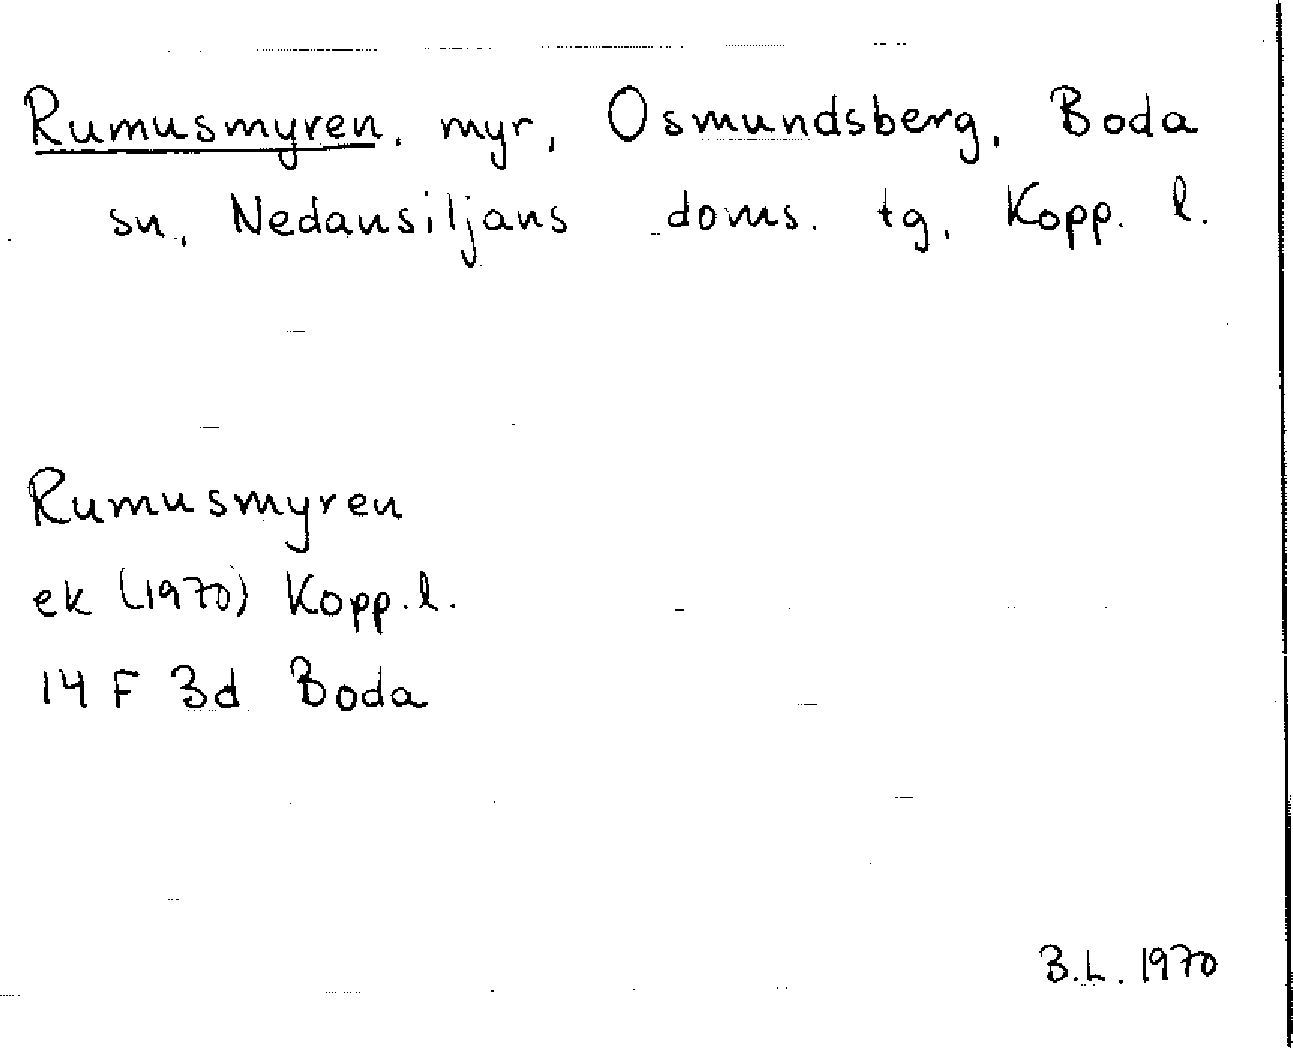 Rumusmyren, myr, Osmundsberg, Boda
sn, Nedansiljans doms. tg, Kopp. l.
Rumusmyren
ek (1970) Kopp. l.
14 F 3d Boda
B.L. 1970